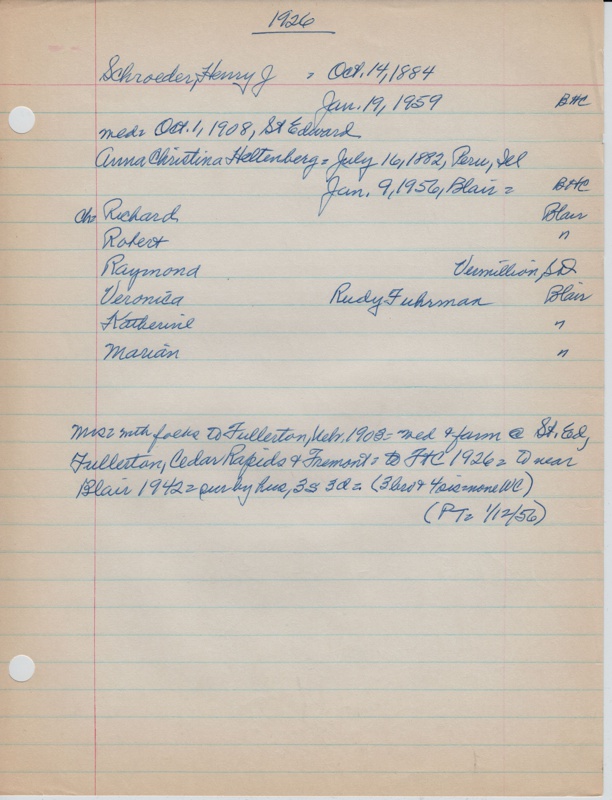 1926
Schroeder, Henry J = Oct. 14, 1884
Jan. 19, 1959 BHC
med= Oct. 1, 1908, St Edward
Anna Christina Heltenberg = July 16, 1882, Peru, Ill
Jan. 9, 1956, Blair = BHC
ch= Richard Blair
Robert "
Raymond Vermillion, SD
Veronica Rudy Fuhrman Blair
Katherine "
Marian "
Mrs= with folks to Fullerton, Nebr. 1903= med & farm @ St. Ed,
Fullerton, Cedar Rapids & Fremont= to FHC 1926= to near
Blair 1942= sur by hus, 3s 3d= (3 bro & 4 sis=none WC)
(PT= 1/12/56)